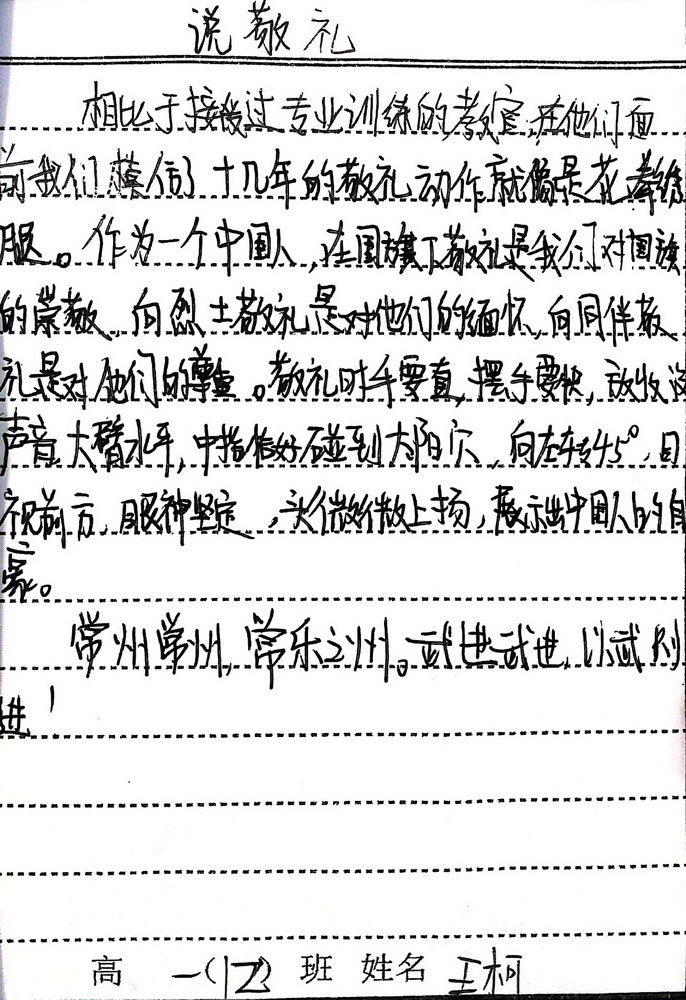 说敬礼
相比于接受过专业训练的教官,在他们面
前我们模仿了十几年的敬礼动作就像是花拳绣
腿。作为一个中国人,在国旗下敬礼是我们对国旗
的崇敬,向烈士敬礼是对他们的缅怀,向同伴敬
礼是对他们的尊重。敬礼时手要直,摆手要快,放收
声音,大臂水平,中指恰好碰到太阳穴,向左转45°,目
视前方,眼神坚定,头微微上扬,展示出中国人的自
豪。
常州常州,常乐之州。武进武进,以武则
进!
高 一(12) 班 姓名 王柯